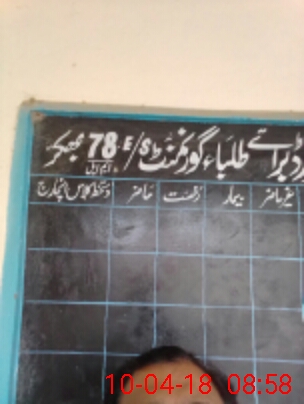 رڈ برائے طلباء گورنمنٹ E/S 78 بھکر
ایم ایل
غیر حاضر بیمار رخصت حاضر دستخط کلاس انچارج
10-04-18 08:58